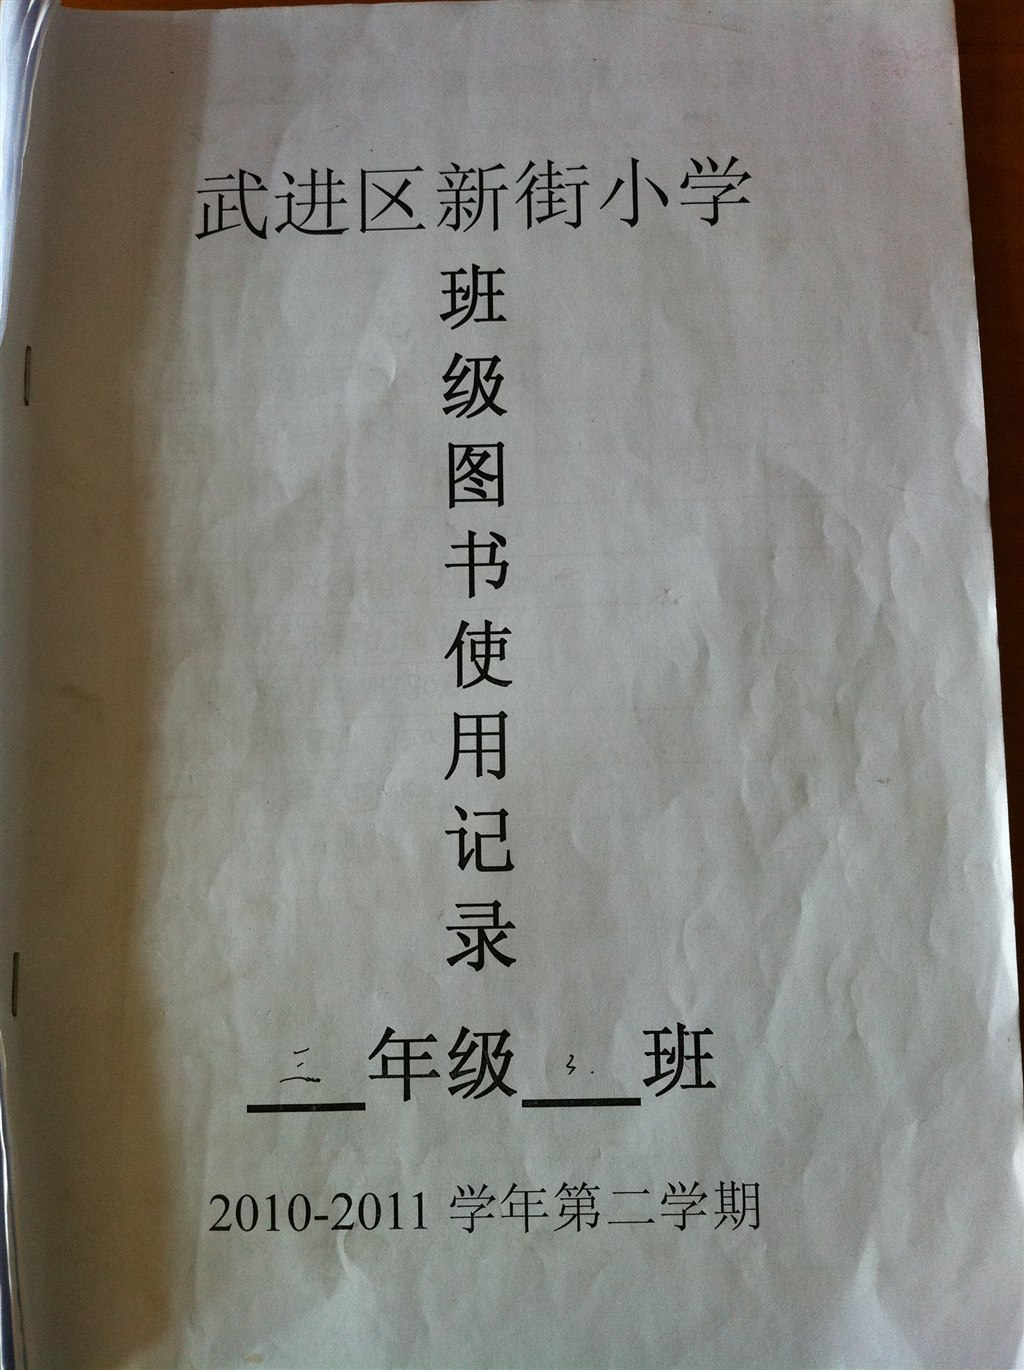 武进区新街小学
班级图书使用记录
三年级3.班
2010-2011 学年第二学期